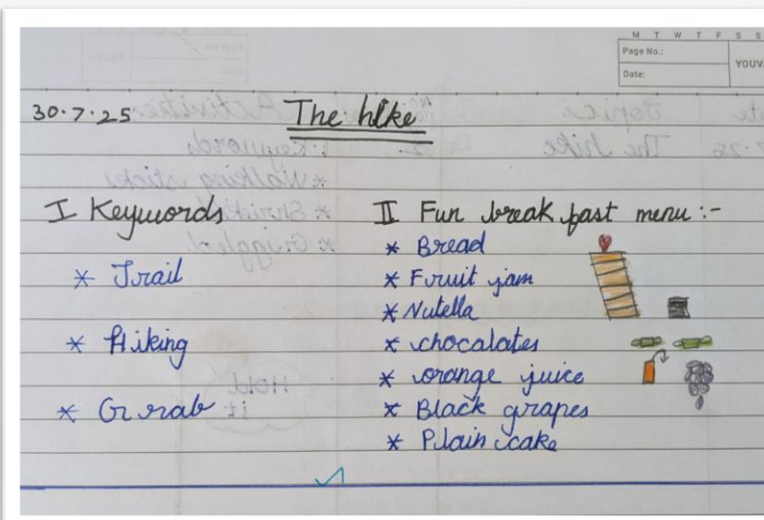 M T W T F S S
Page No.:
Date:
YOUV
30.7.25
The hike
I Keywords
* Trail
* Hiking
* Grab
II Fun break fast menu :-
* Bread
* Fruit jam
* Nutella
* chocalates
* orange juice
* Black grapes
* Plain cake